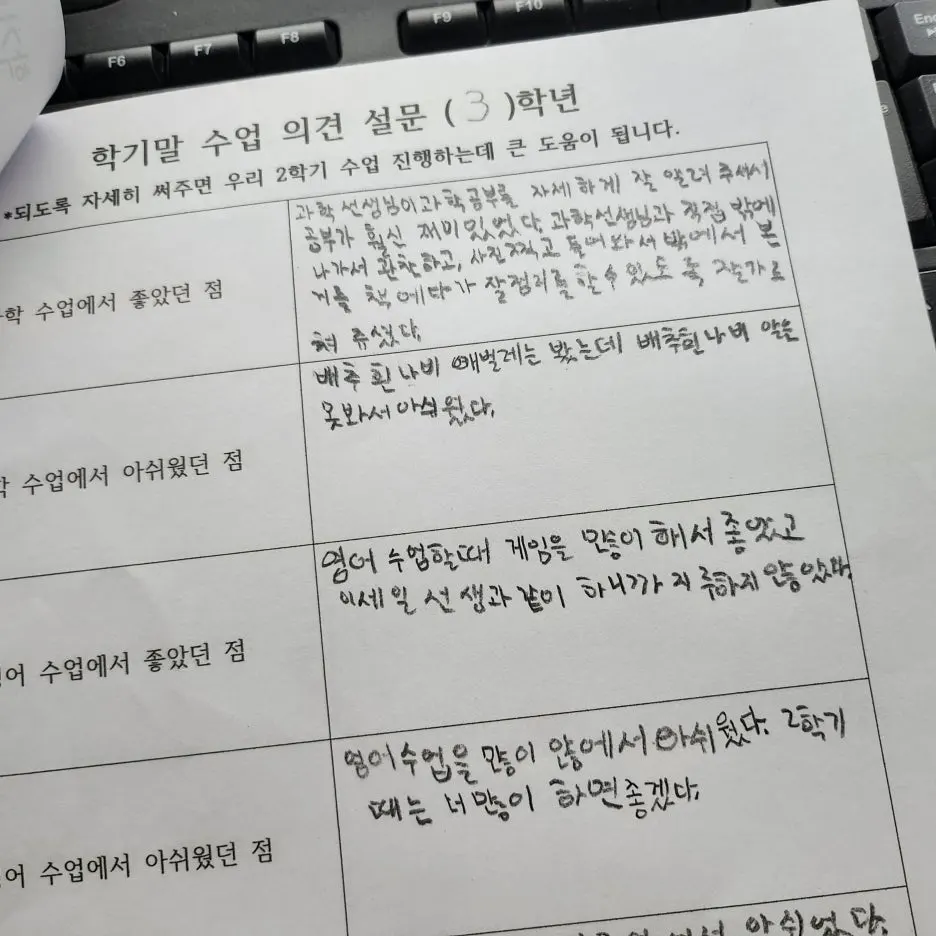 F6 F7 F8 F9 F10
학기말 수업 의견 설문 ( 3 )학년
*되도록 자세히 써주면 우리 2학기 수업 진행하는데 큰 도움이 됩니다.
학 수업에서 좋았던 점
과학 선생님이 과학공부를 자세하게 잘 알려 주셔서
공부가 훨신 재미있었다. 과학선생님과 직접 밖에
나가서 관찬하고, 사진찍고 들어와서 밖에서 본
거를 책에다가 잘정리를 할수있도록 잘가르
쳐 주셨다.
학 수업에서 아쉬웠던 점
배추흰나비 애벌레는 봤는데 배추흰나비 알은
못봐서 아쉬웠다.
어 수업에서 좋았던 점
영어 수업할때 게임을 많이 해서 좋았고
이세일 선생과 같이 하니까 지루하지 않았다.
어 수업에서 아쉬웠던 점
영어수업을 많이 않해서 아쉬웠다. 2학기
때는 더 많이 하면좋겠다.
아쉬었다.